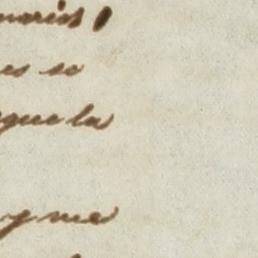 narios
es se
que la
y me